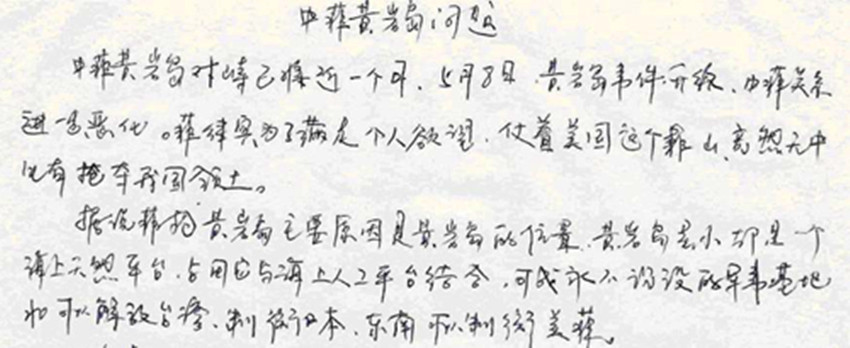 中菲黄岩岛问题
中菲黄岩岛对峙已将近一个月，5月8日，黄岩岛事件升级，中菲关系
进一步恶化。菲律宾为了满足个人欲望，仗着美国这个靠山，竟然无中
生有抢夺我国领土。
据说菲抢黄岩岛主要原因是黄岩岛的位置，黄岩岛虽小却是一个
海上天然平台，占用它与海上人工平台结合，可成永不沉没的军事基地
北可以解放台湾、制衡日本，东南可以制衡美菲。